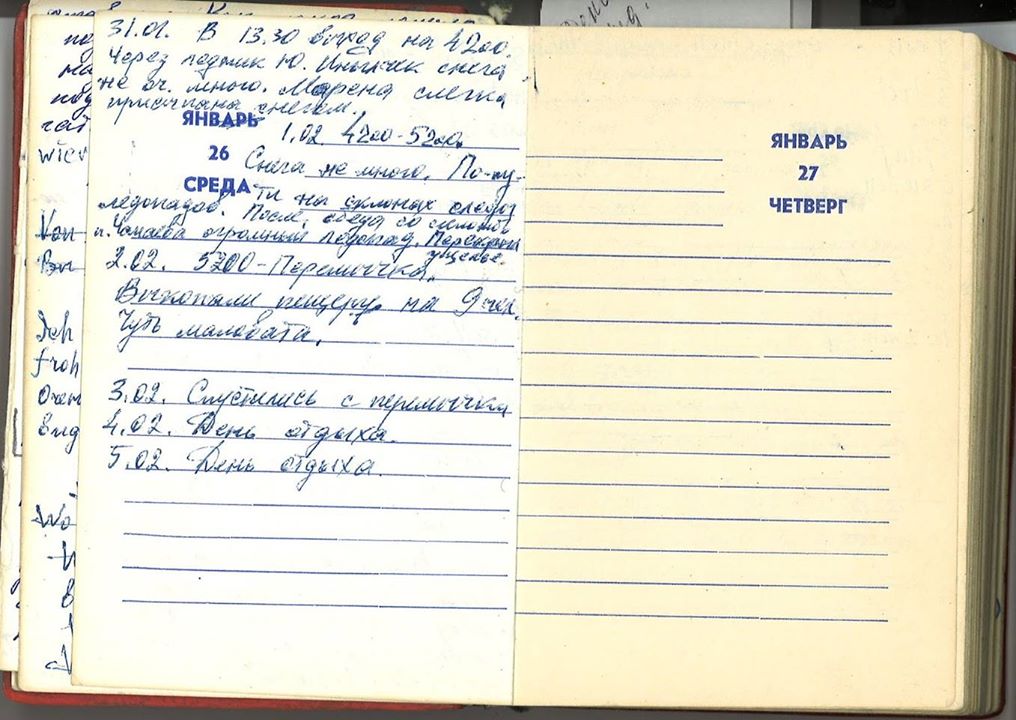 31.01. В 13.30 выход на 4200.
Через ледник Ю. Иныльчек снега
не оч. много. Морена слегка
присыпана снегом.
ЯНВАРЬ
26
СРЕДА
1.02. 4200-5200.
Снега не много. По пу-
ти на склонах следы
ледопадов. После обеда со склонов
п. Чапаева огромный ледопад. Перекрыл
ущелье.
2.02. 5200-Перемычка.
Выкопали пещеру на 9 чел.
Чуть маловата.
3.02. Спустились с перемычки
4.02. День отдыха.
5.02. День отдыха.
ЯНВАРЬ
27
ЧЕТВЕРГ